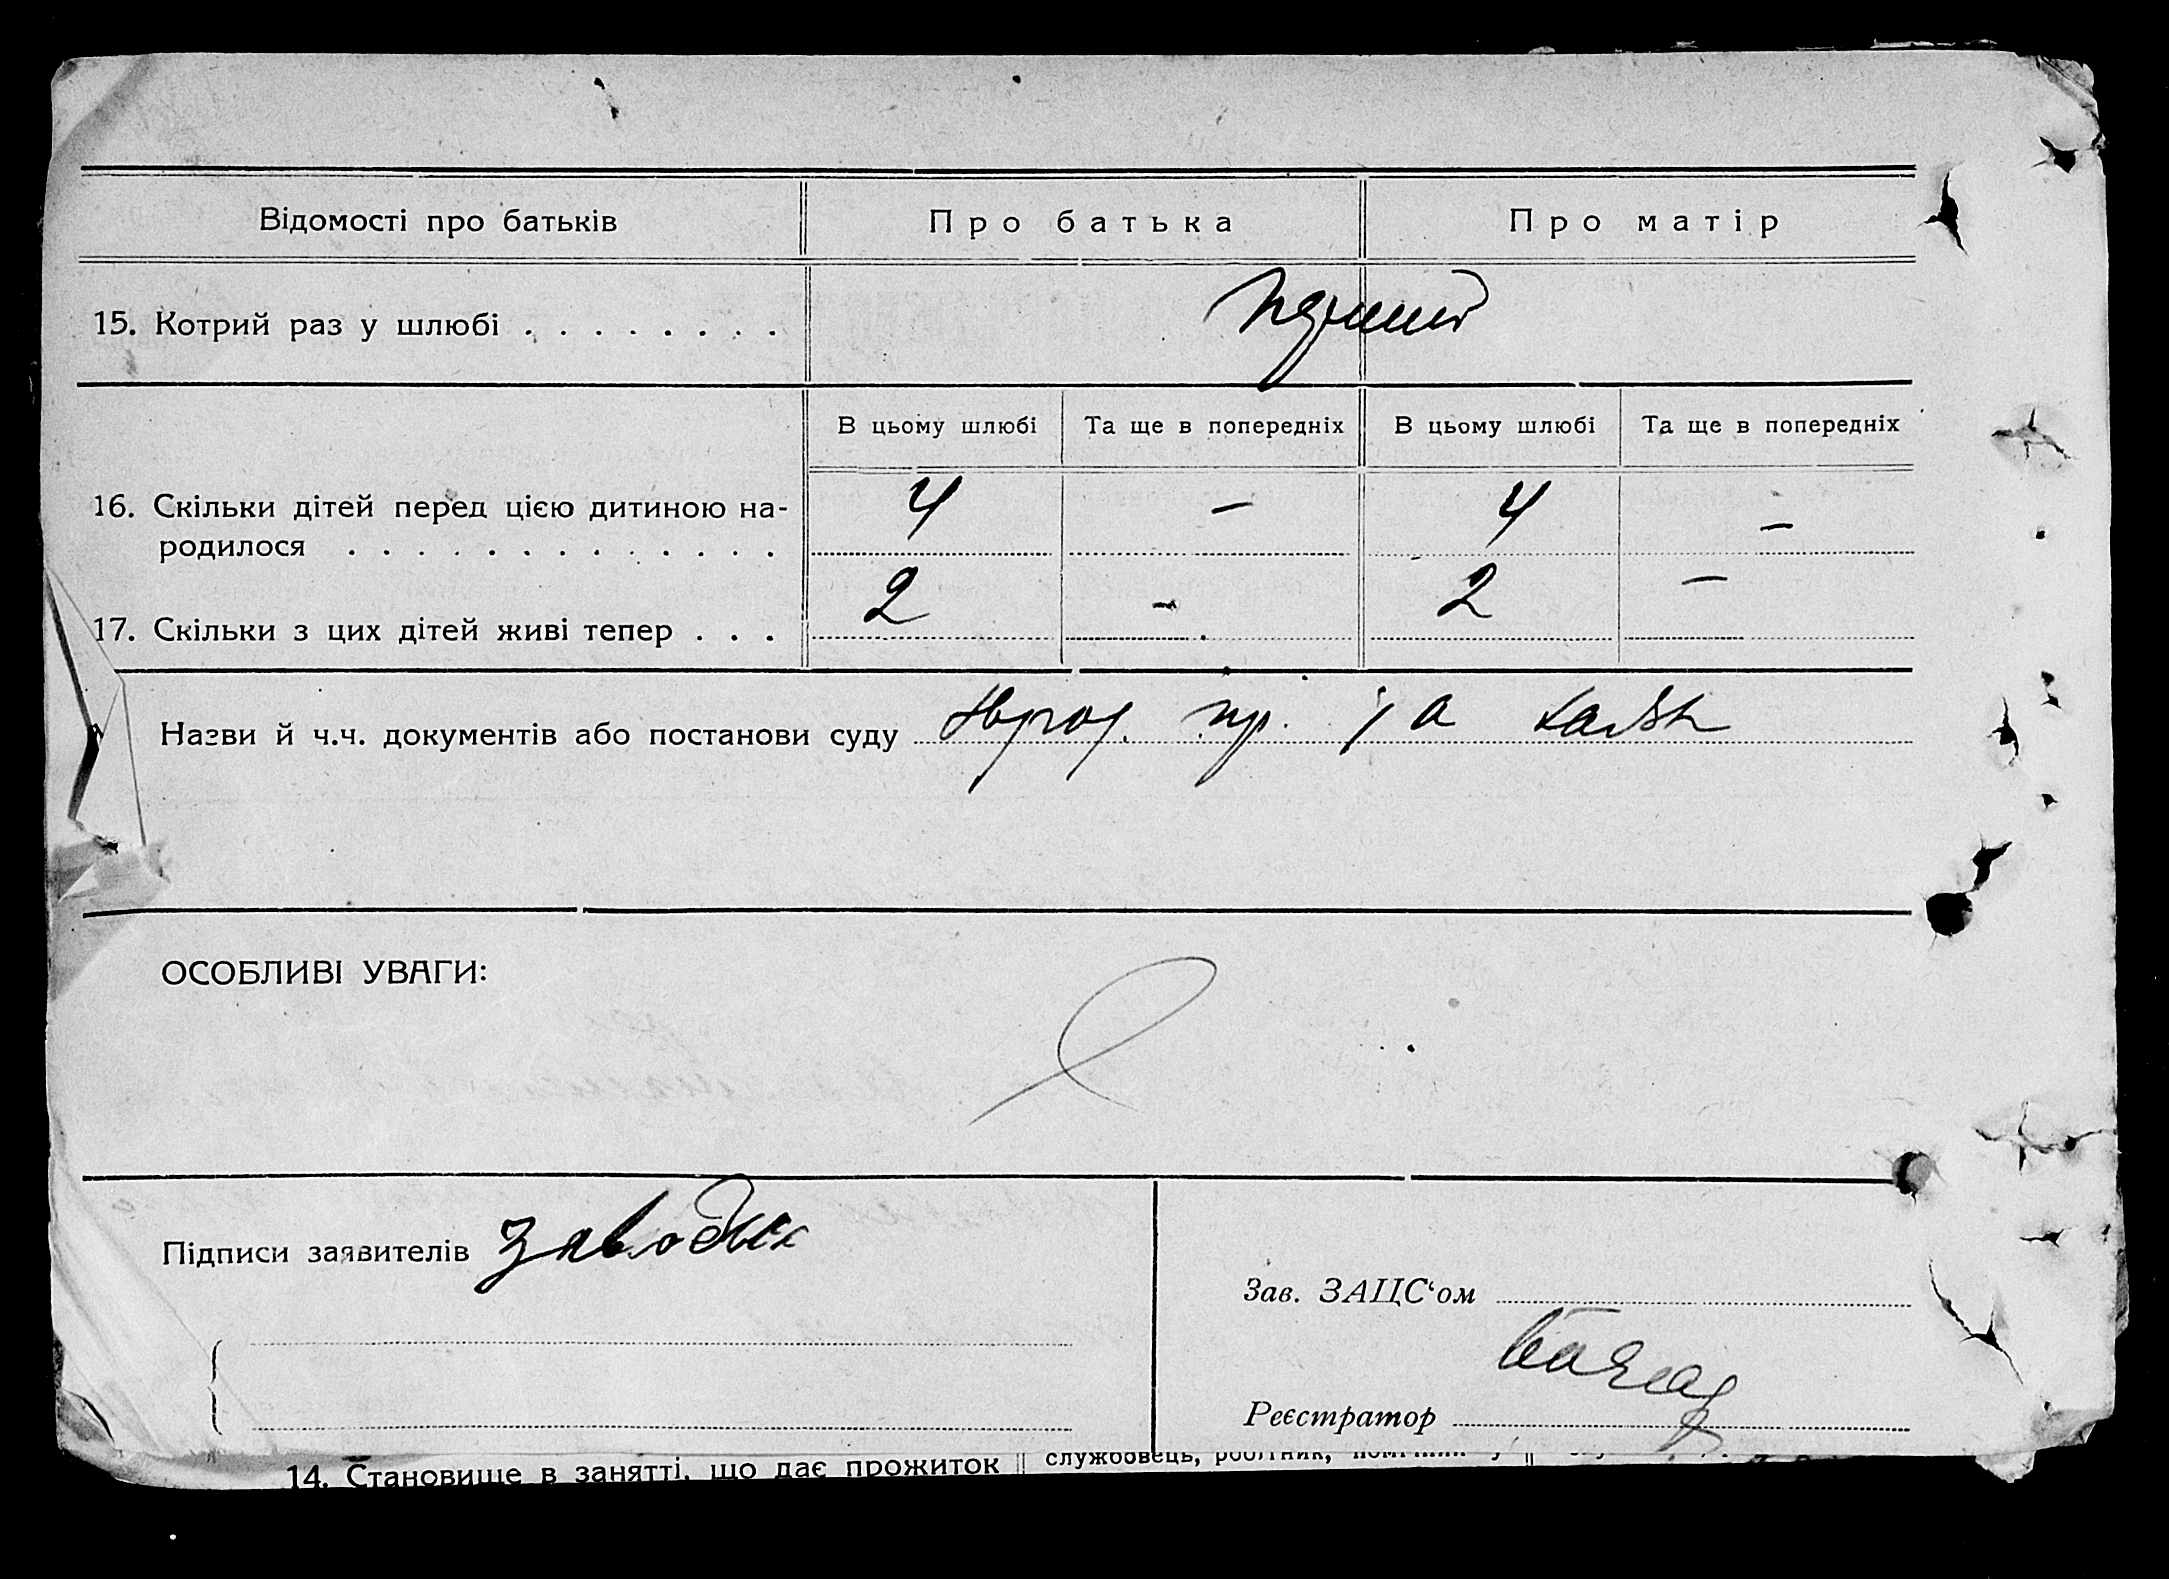 Відомості про батьків Про батька Про матір
15. Котрий раз у шлюбі . . . . . . . .
В цьому шлюбі Та ще в попередніх В цьому шлюбі Та ще в попередніх
16. Скільки дітей перед цією дитиною на- 4 – 4 –
родилося . . . . . . . . . . . . .
17. Скільки з цих дітей живі тепер . . . 2 – 2 –
Назви й ч.ч. документів або постанови суду
ОСОБЛИВІ УВАГИ:
Підписи заявителів
Зав. ЗАЦС‘ом
Реєстратор
14. Становище в занятті, що дає прожиток службовець, робітник,